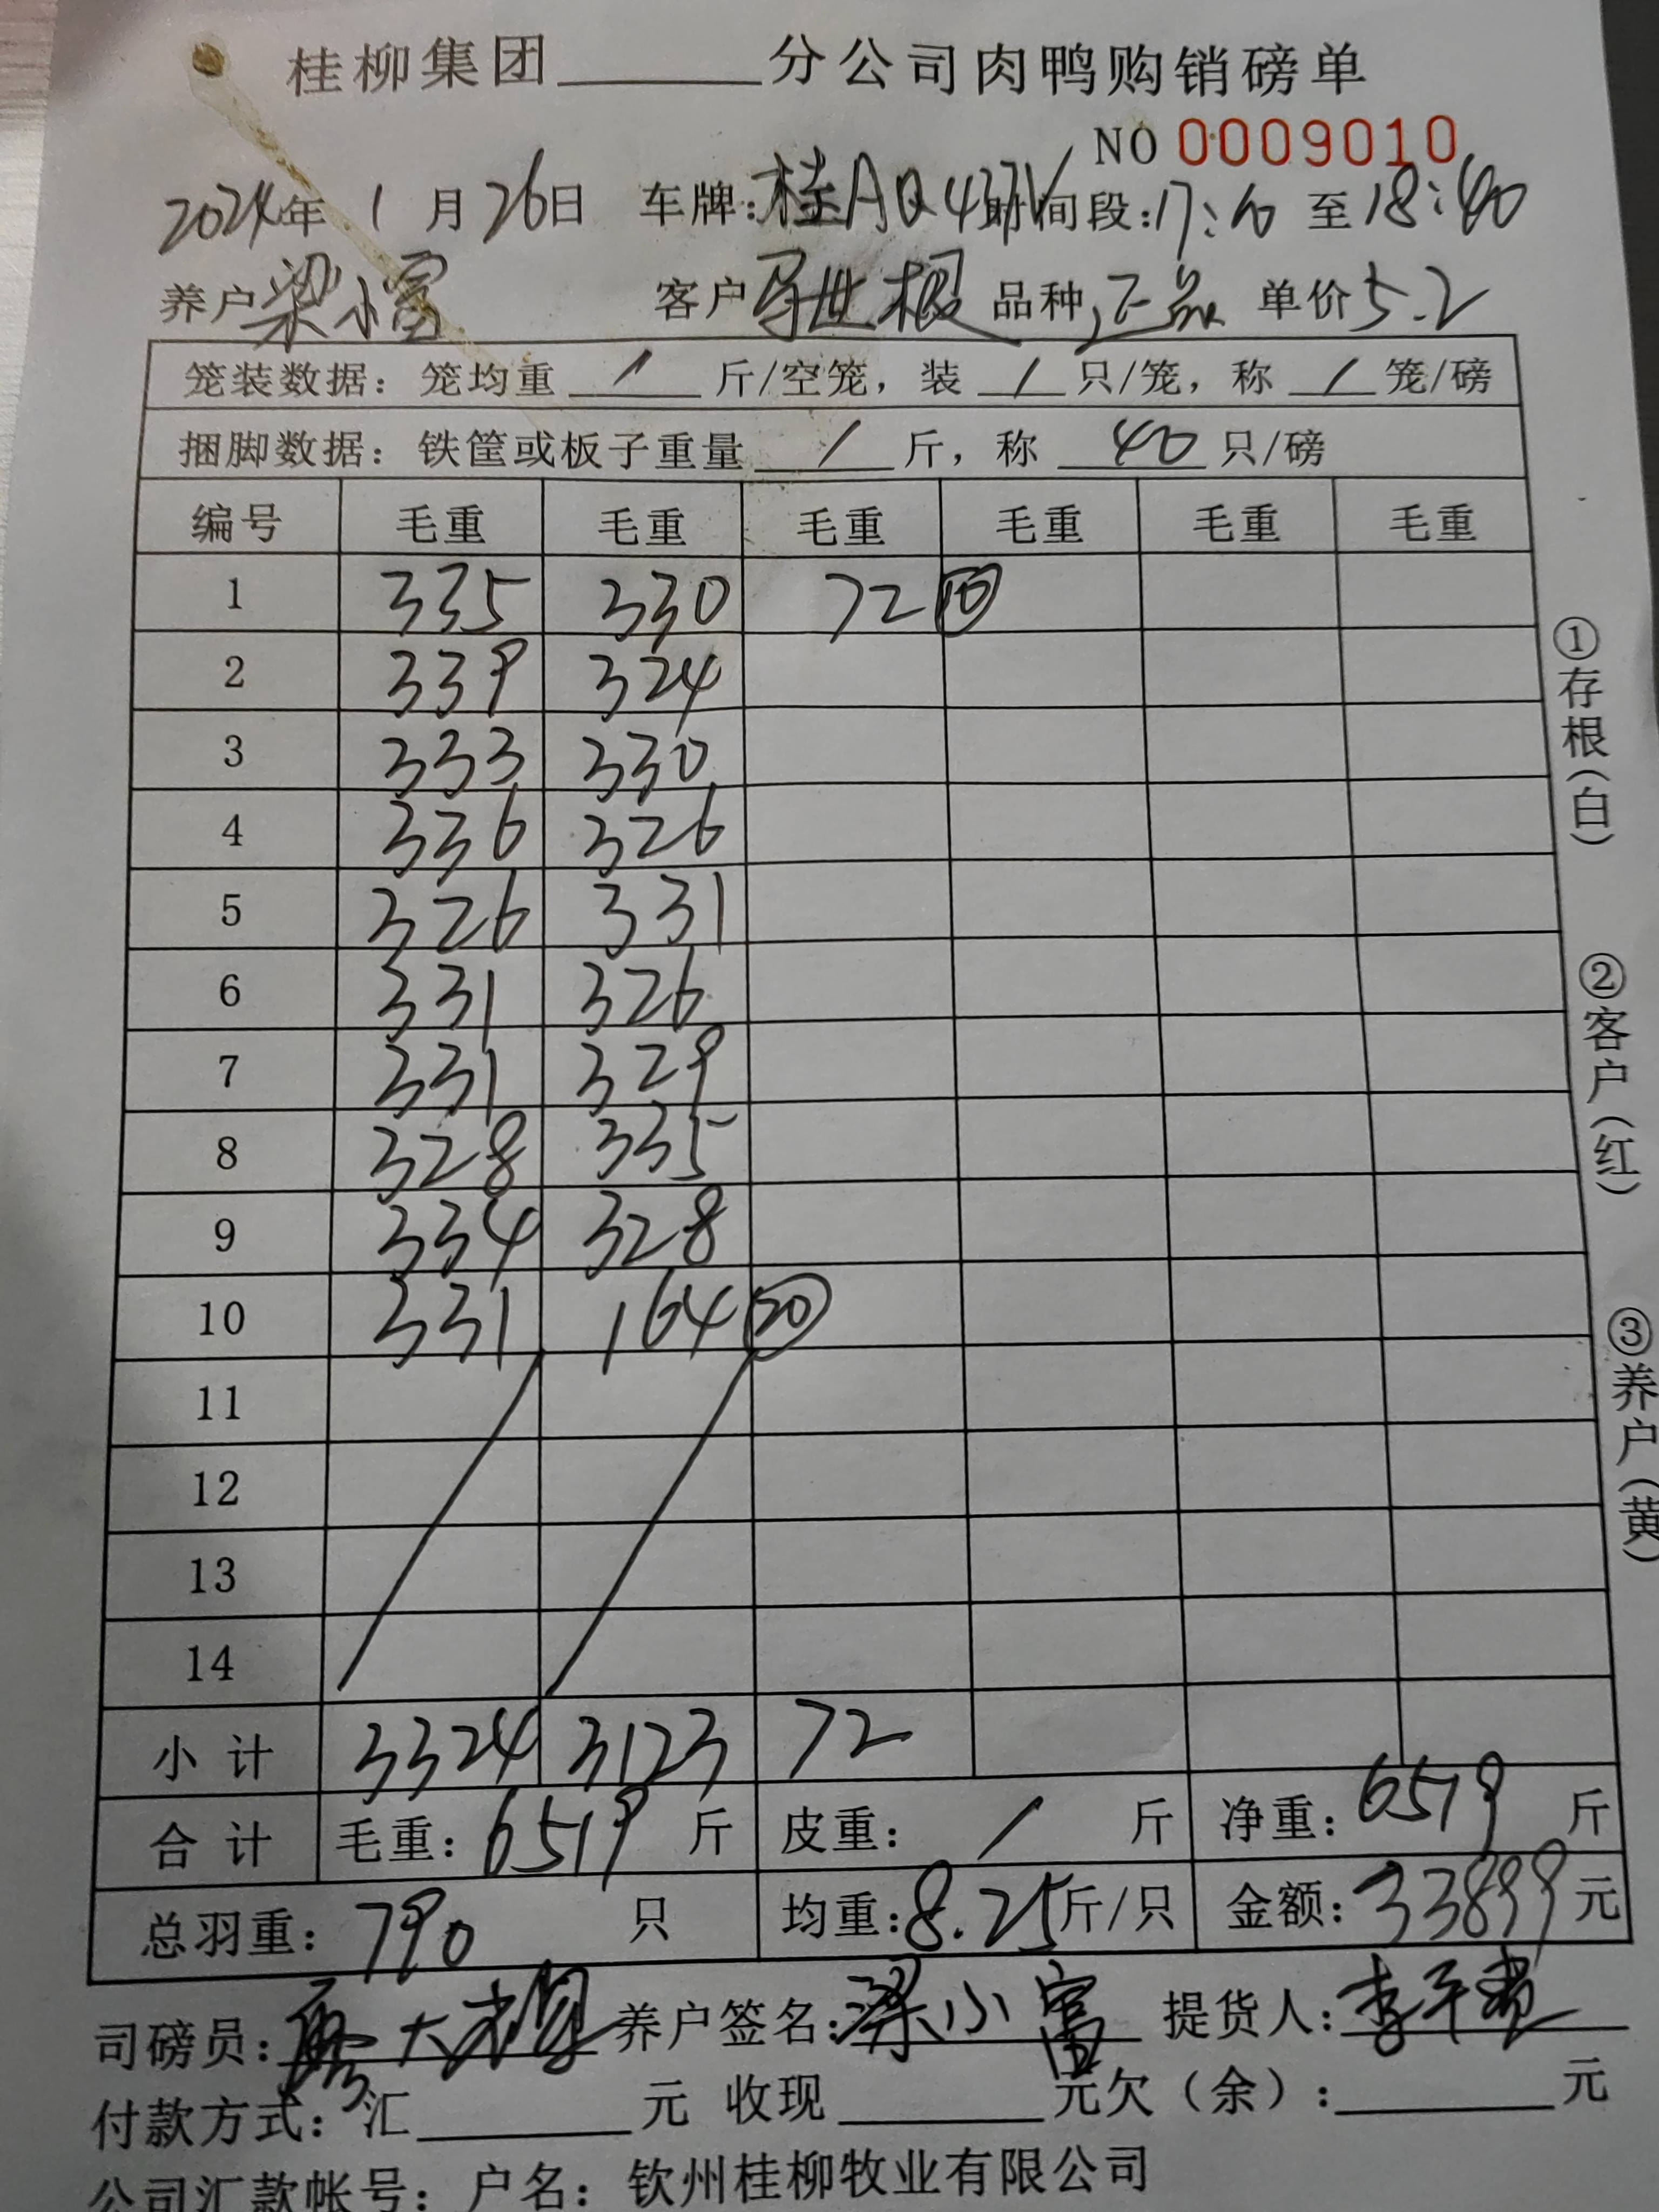 桂柳集团______分公司肉鸭购销磅单
NO 0009010
2024年 1 月 26日 车牌:桂AQ4 时间段:17:10 至 18:40
养户 梁小富 客户 世根 品种 正品 单价 5.2
笼装数据: 笼均重 / 斤/空笼, 装 / 只/笼, 称 / 笼/磅
捆脚数据: 铁筐或板子重量 / 斤, 称 40 只/磅
编号 毛重 毛重 毛重 毛重 毛重 毛重
1 335 330 72 ⑩
2 339 324
3 333 330
4 336 326
5 326 331
6 331 326
7 331 329
8 328 335
9 334 328
10 331 164 ⑳
11
12
13
14
小计 3324 3123 72
合计 毛重: 6519 斤 皮重: / 斤 净重: 6519 斤
总羽重: 790 只 均重: 8.25 斤/只 金额: 33899 元
司磅员: 养户签名: 梁小富 提货人: 李
付款方式: 汇______元 收现______元欠(余):______元
公司汇款帐号: 户名: 钦州桂柳牧业有限公司
①存根(白)
②客户(红)
③养户(黄)